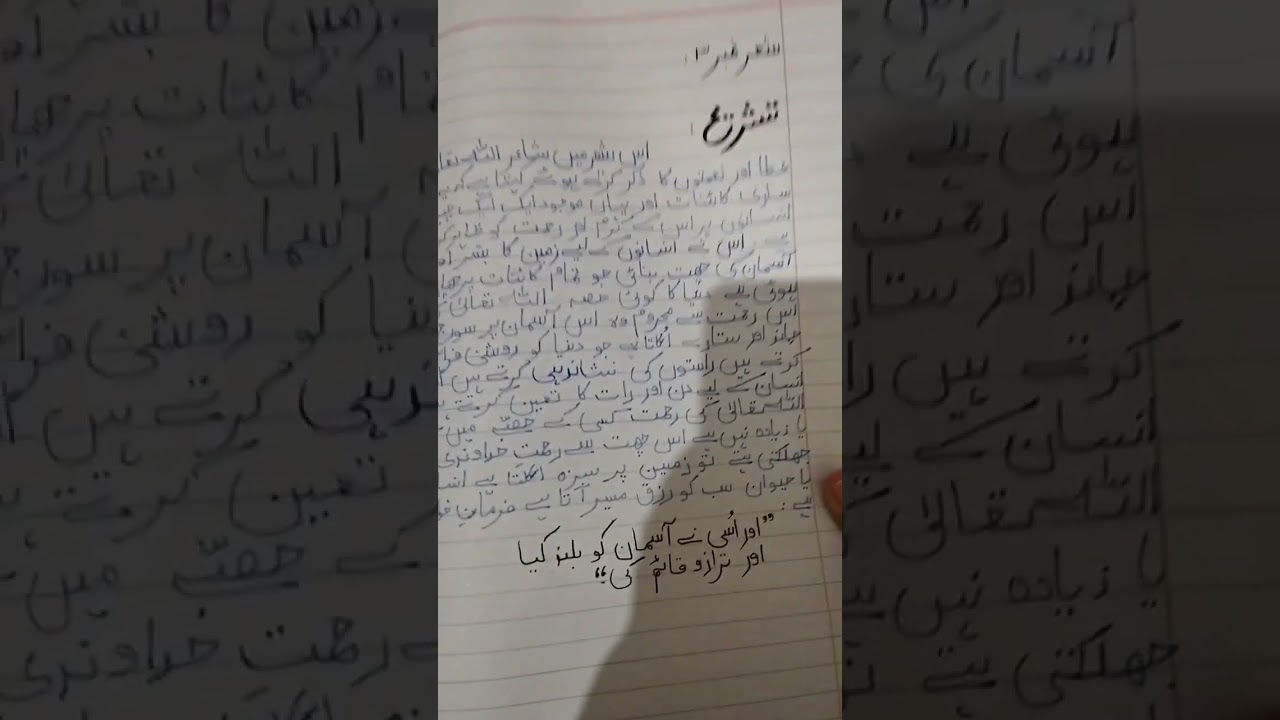 شعر نمبر ۳:
تشریح:
اس شعر میں شاعر اللہ تعا
عطا اور نعمتوں کا ذکر کرتے ہوئے کہتا ہے کہ یہ
ساری کائنات اور یہاں موجود ایک ایک چیز
انسانوں پر اس کے کرم اور رحمت کو ظاہر کر
ہے۔ اس نے انسانوں کے لیے زمین کا بستر او
آسمان کی چھت بنائی جو تمام کائنات پر چھا
ہوئی ہے دنیا کا کوئی حصہ اللہ تعالیٰ کی
اس رحمت سے محروم وہ اس آسمان پر سورج
چاند اور ستارے اُگاتا ہے جو دنیا کو روشنی فرا
کرتے ہیں راستوں کی نشاندہی کرتے ہیں ا
انسان کے لیے دن اور رات کا تعین کرتے ہی
اللہ تعالیٰ کی رحمت کسی کے حصّے میں
یا زیادہ نہیں ہے اس چھت سے رحمتِ خداوندی
چھلکتی ہے تو زمین پر سبزہ اگتا ہے انس
یا حیوان سب کو رزق میسر آتا ہے فرمانِ
ہے:
”اور اُسی نے آسمان کو بلند کیا
اور ترازو قائم کی“